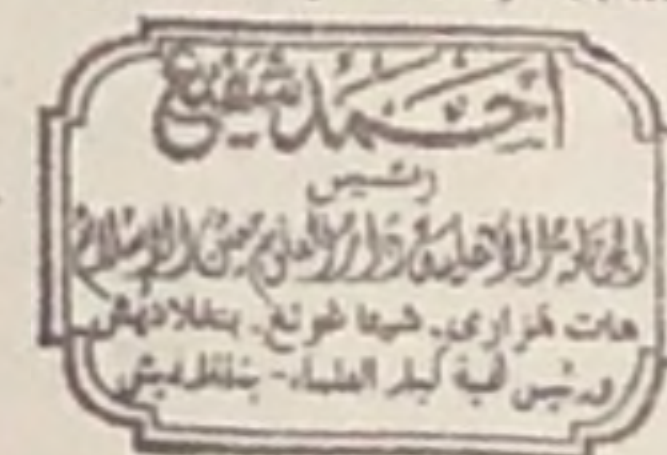 احمد شفيع
رئيس
الجامعة الأهلية دار العلوم معين الإسلام
هات هزارى۔ شيتا غونغ۔ بنغلاديش
ورئيس كبار العلماء - بنغلاديش